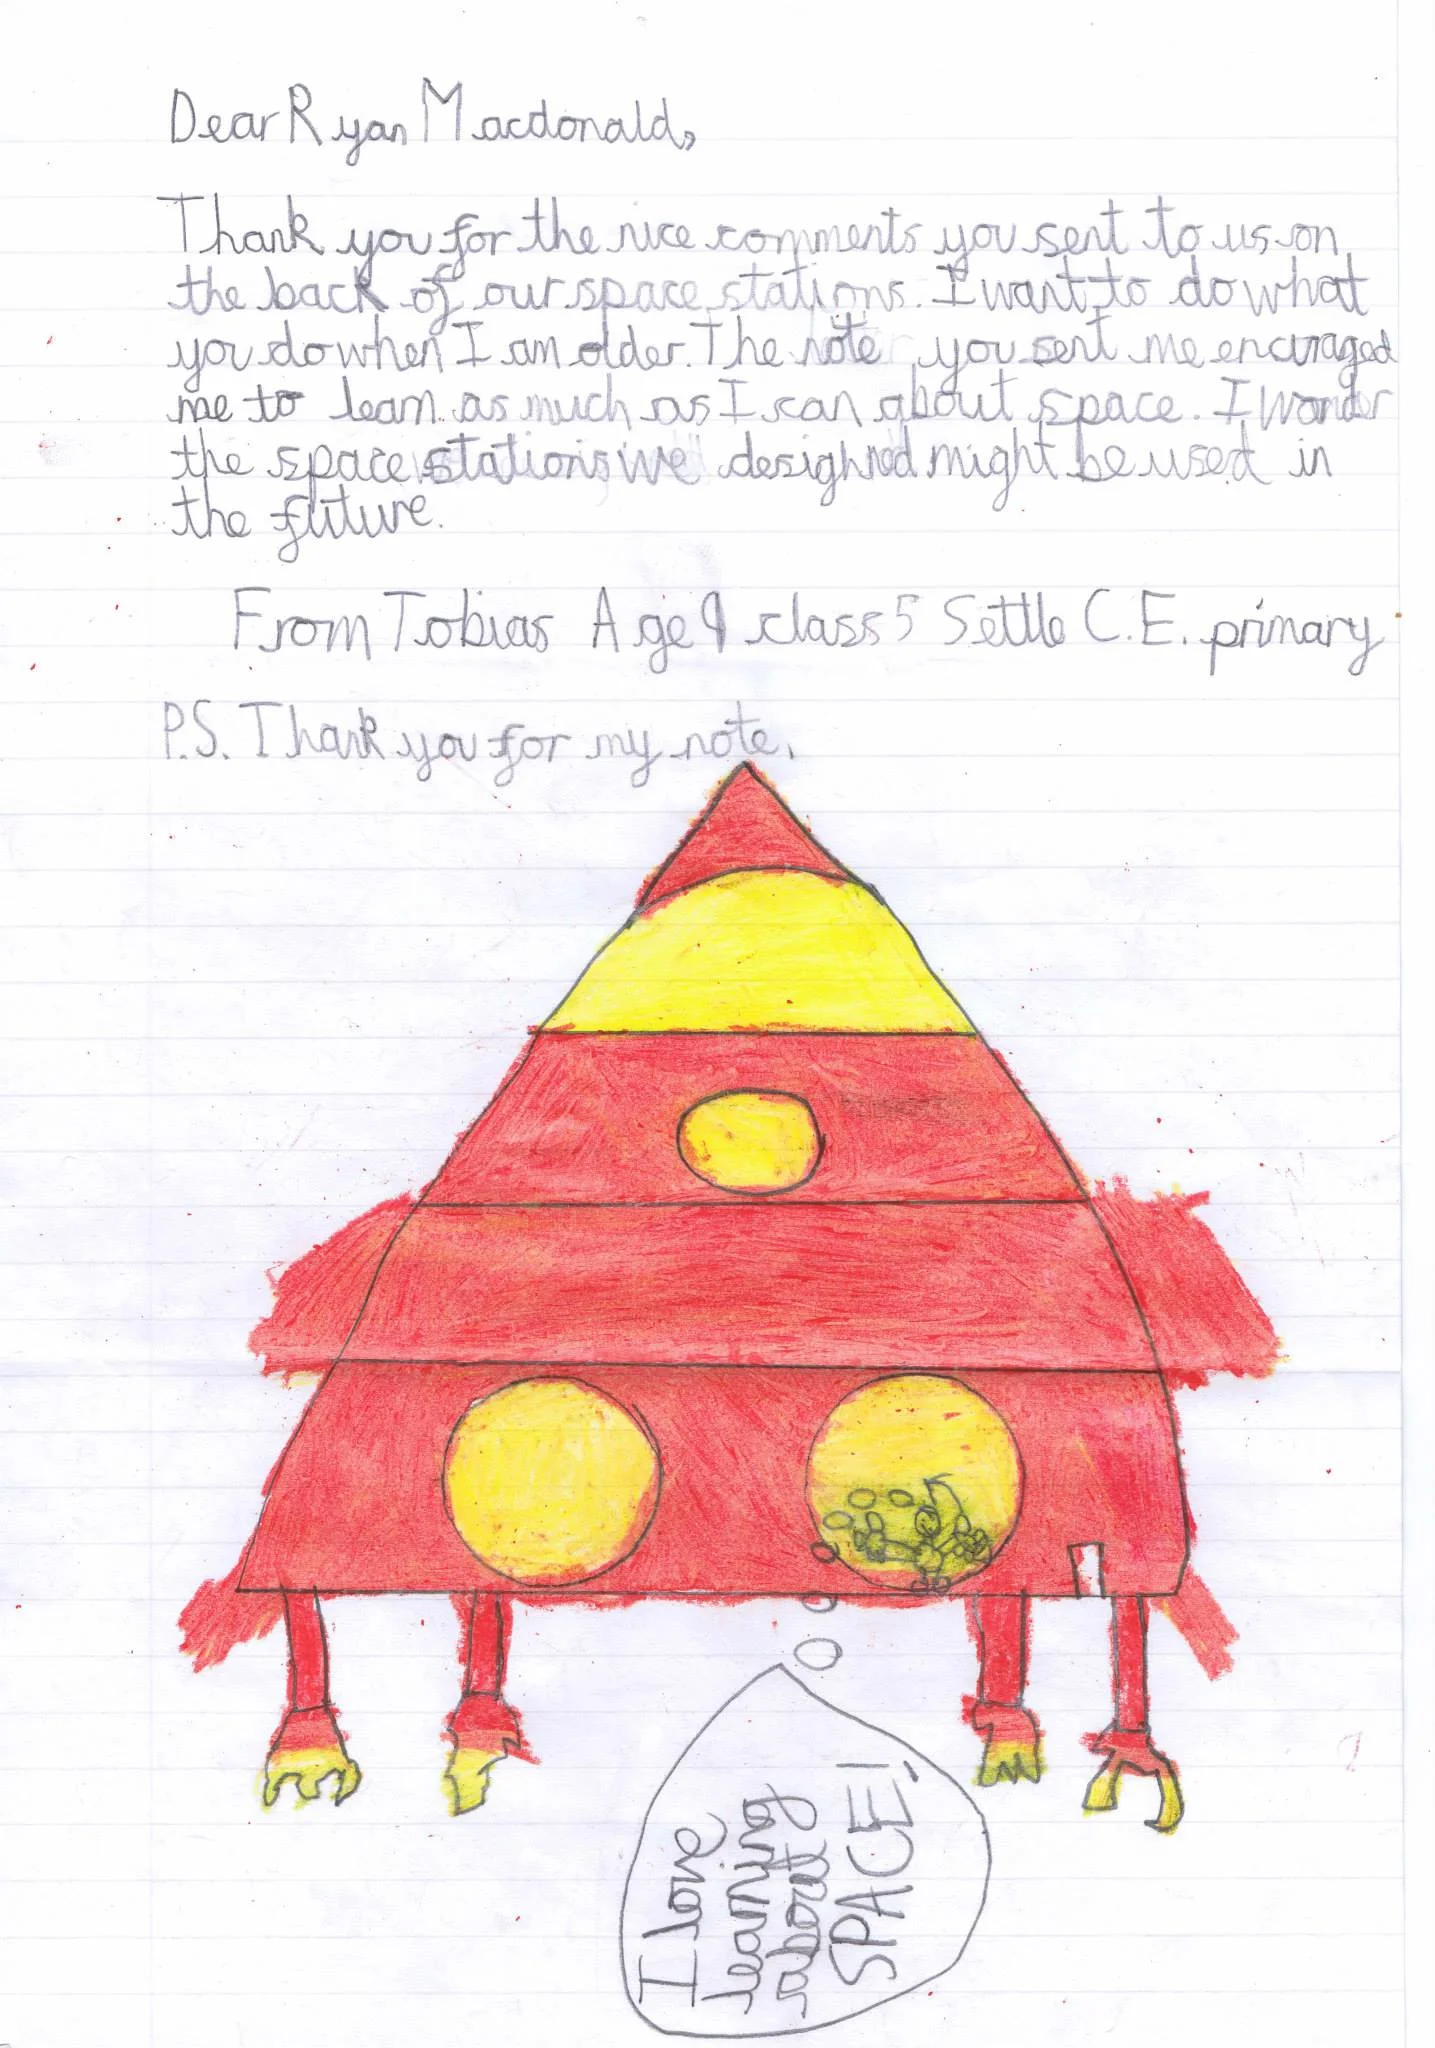 Dear Ryan Macdonald,
Thank you for the nice comments you sent to us on
the back of our space stations. I want to do what
you do when I am older. The note you sent me encuraged
me to learn as much as I can about space. I wonder
the space stations we desighned might be used in
the future.
From Tobias Age 9 class 5 Settle C.E. primary
P.S. Thank you for my note.
I love
learning
about
SPACE!